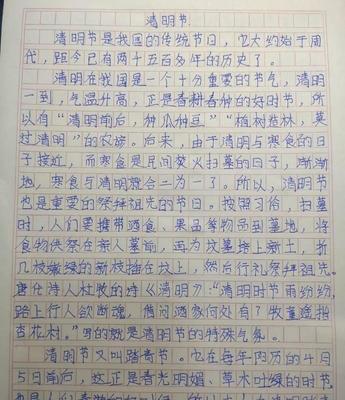 清明节
清明节是我国的传统节日，它大约始于周
代，距今已有两千五百多年的历史了。
清明在我国是一个十分重要的节气，清明
一到，气温升高，正是春耕春种的好时节，所
以有“清明前后，种瓜种豆”“植树造林，莫
过清明”的农谚。后来，由于清明与寒食的日
子接近，而寒食是民间禁火扫墓的日子，渐渐
地，寒食与清明就合二为一了。所以，清明节
也是重要的祭拜祖先的节日。按照习俗，扫墓
时，人们要携带酒食、果品等物品到墓地，将
食物供祭在亲人墓前，再为坟墓培上新土，折
几枝嫩绿的新枝插在坟上，然后行礼祭拜祖先。
唐代诗人杜牧的诗《清明》：“清明时节雨纷纷，
路上行人欲断魂，借问酒家何处有？牧童遥指
杏花村。”写的就是清明节的特殊气氛。
清明节又叫踏青节。它在每年阳历的4月
5日前后，这正是春光明媚、草木吐绿的时节，